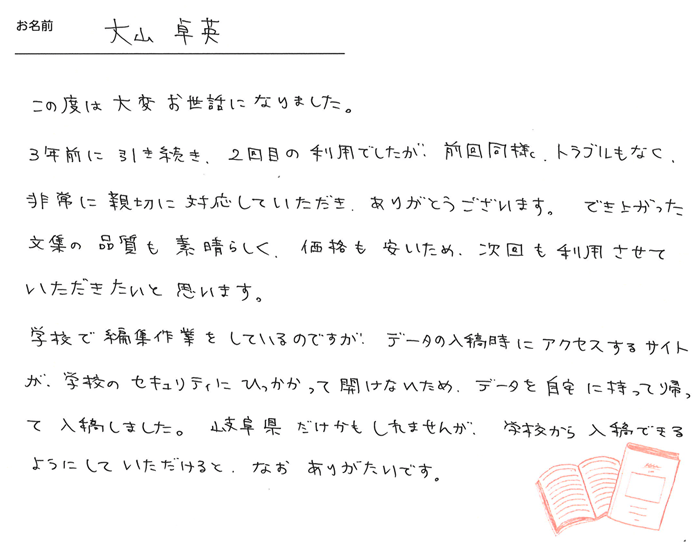 お名前 大山 卓英
この度は 大変 お世話に なりました。
3年前に 引き続き、2回目の 利用でしたが、前回同様に、トラブルもなく、
非常に 親切に 対応していただき、ありがとうございます。 でき上がった
文集の 品質も 素晴らしく、価格も 安いため、次回も 利用させて
いただきたいと 思います。
学校で 編集作業を しているのですが、 データの入稿時に アクセスするサイト
が、学校の セキュリティに ひっかかって 開けないため、データを 自宅に持って帰っ
て 入稿しました。 岐阜県だけかもしれませんが、 学校から 入稿できる
ようにして いただけると、なお ありがたいです。